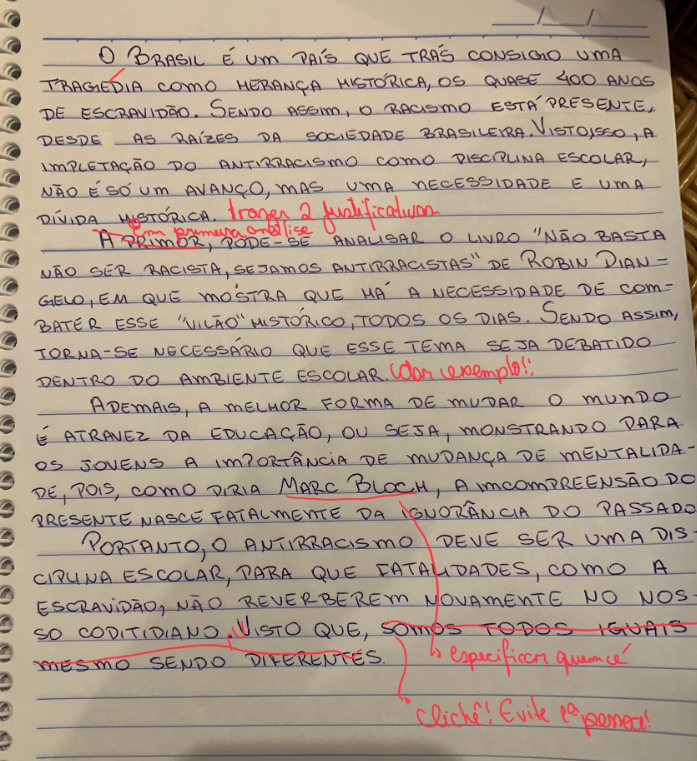 __/__/__
O BRASIL É UM PAÍS QUE TRÁS CONSIGO UMA
TRAGÉDIA COMO HERANÇA HISTÓRICA, OS QUASE 400 ANOS
DE ESCRAVIDÃO. SENDO ASSIM, O RACISMO ESTÁ PRESENTE,
DESDE AS RAÍZES DA SOCIEDADE BRASILEIRA. VISTO ISSO, A
IMPLETAÇÃO DO ANTIRRACISMO COMO DISCIPLINA ESCOLAR,
NÃO É SÓ UM AVANÇO, MAS UMA NECESSIDADE E UMA
DÍVIDA HISTÓRICA. trazer 2 justificativas
em primeira análise
A PRIMOR, PODE-SE ANALISAR O LIVRO "NÃO BASTA
NÃO SER RACISTA, SEJAMOS ANTIRRACISTAS" DE ROBIN DIAN-
GELO, EM QUE MOSTRA QUE HÁ A NECESSIDADE DE COM-
BATER ESSE "VILÃO" HISTÓRICO, TODOS OS DIAS. SENDO ASSIM,
TORNA-SE NECESSÁRIO QUE ESSE TEMA SEJA DEBATIDO
DENTRO DO AMBIENTE ESCOLAR. (dar exemplo!!
ADEMAIS, A MELHOR FORMA DE MUDAR O MUNDO
É ATRAVEZ DA EDUCAÇÃO, OU SEJA, MONSTRANDO PARA
OS JOVENS A IMPORTÂNCIA DE MUDANÇA DE MENTALIDA-
DE, POIS, COMO DIRIA MARC BLOCH, A IMCOMPREENSÃO DO
PRESENTE NASCE FATALMENTE DA IGNORÂNCIA DO PASSADO
PORTANTO, O ANTIRRACISMO DEVE SER UMA DIS-
CIPLINA ESCOLAR, PARA QUE FATALIDADES, COMO A
ESCRAVIDÃO, NÃO REVERBEREM NOVAMENTE NO NOS-
SO CODITIDIANO, VISTO QUE, SOMOS TODOS IGUAIS
MESMO SENDO DIFERENTES.
especificar quem é
clichê! Evite 1ª pessoa!